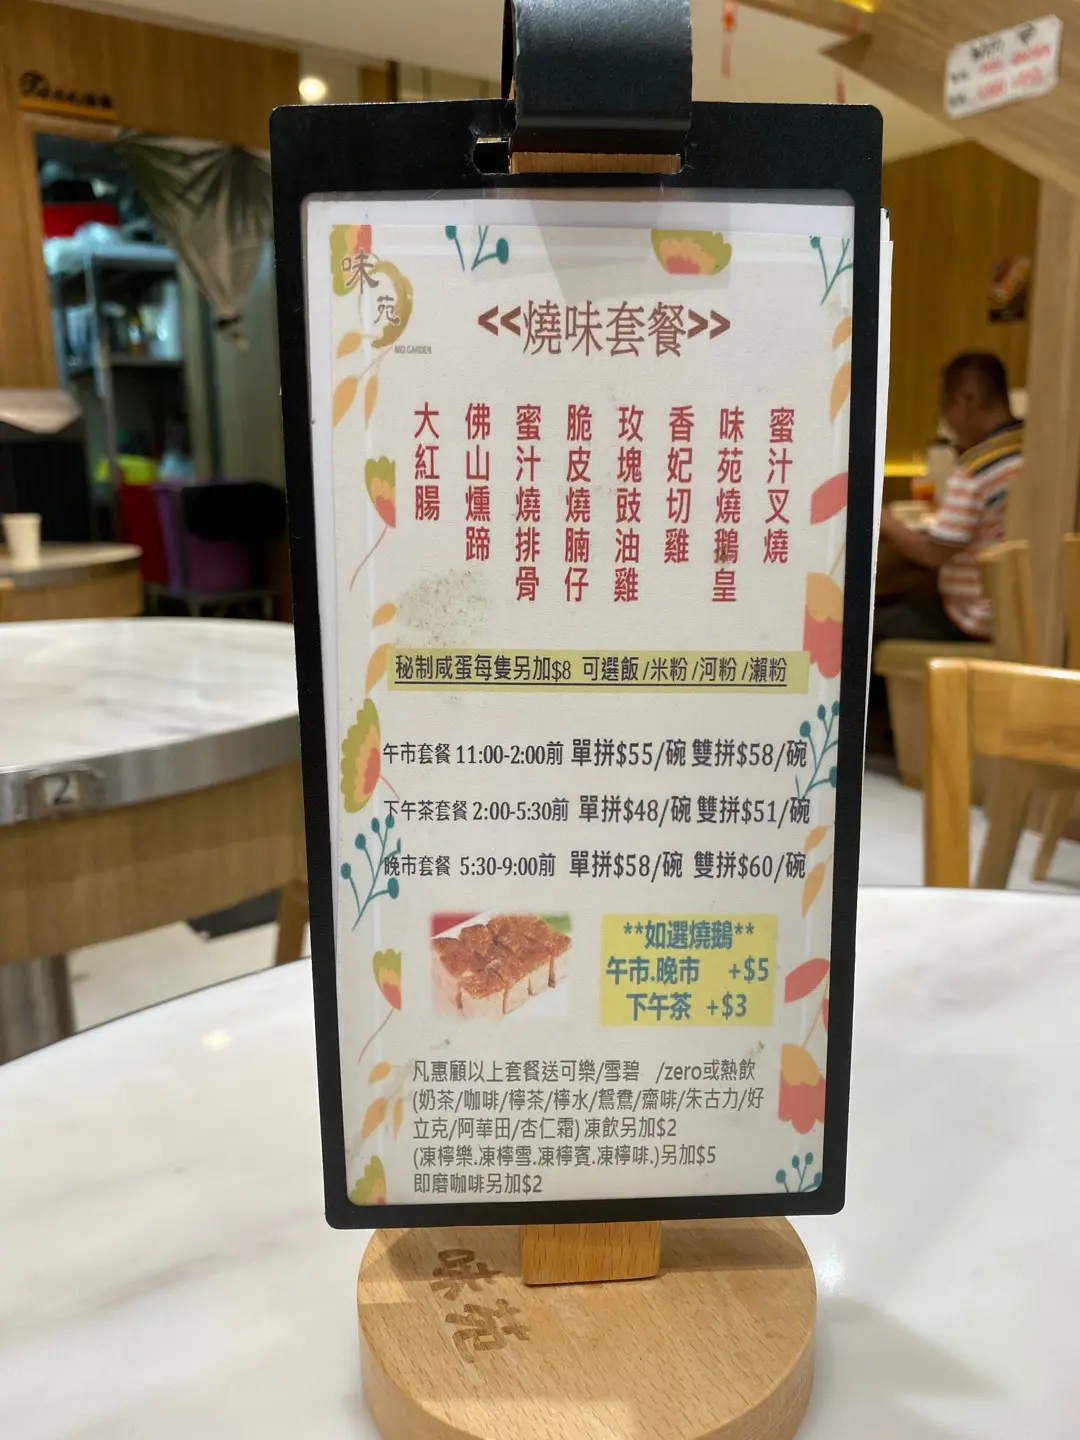 味
苑
MIO GARDEN
<<燒味套餐>>
蜜汁叉燒
味苑燒鵝皇
香妃切雞
玫塊豉油雞
脆皮燒腩仔
蜜汁燒排骨
佛山燻蹄
大紅腸
秘制咸蛋每隻另加$8 可選飯/米粉/河粉/瀨粉
午市套餐 11:00-2:00前 單拼$55/碗 雙拼$58/碗
下午茶套餐 2:00-5:30前 單拼$48/碗 雙拼$51/碗
晚市套餐 5:30-9:00前 單拼$58/碗 雙拼$60/碗
**如選燒鵝**
午市.晚市 +$5
下午茶 +$3
凡惠顧以上套餐送可樂/雪碧 /zero或熱飲
(奶茶/咖啡/檸茶/檸水/鴛鴦/齋啡/朱古力/好
立克/阿華田/杏仁霜) 凍飲另加$2
(凍檸樂.凍檸雪.凍檸賓.凍檸啡.)另加$5
即磨咖啡另加$2
味苑
2